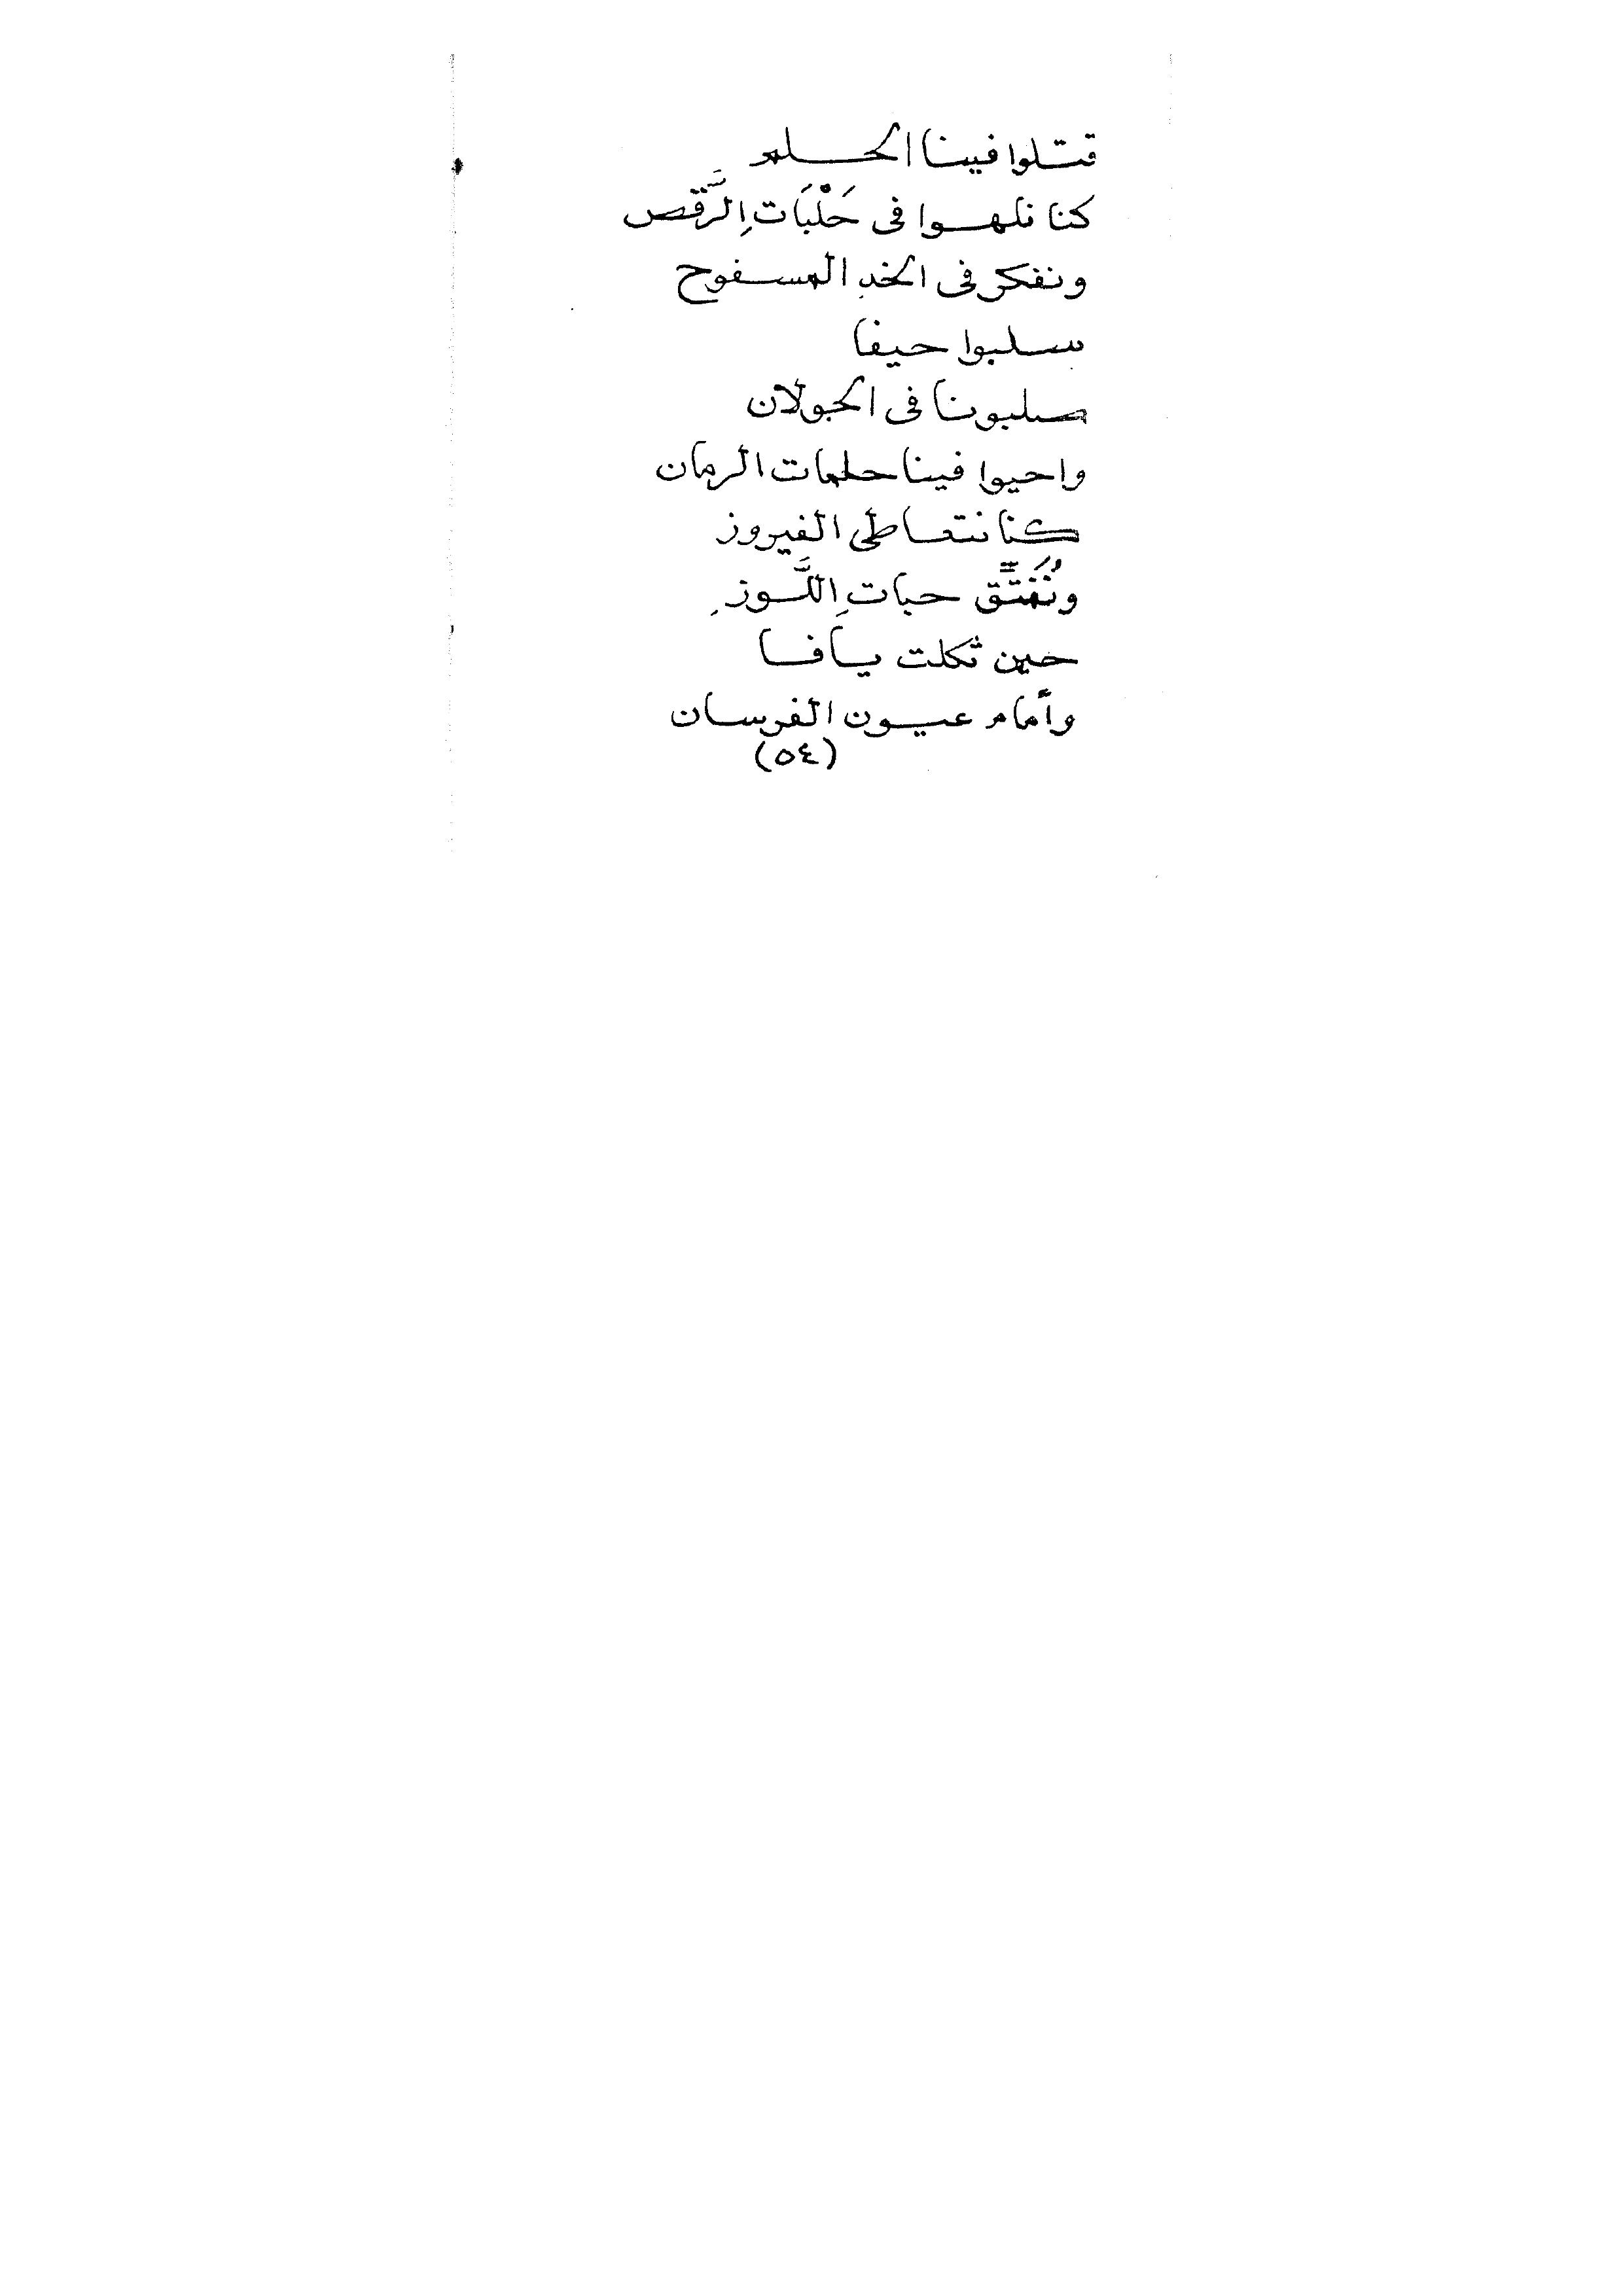 قتلوا فينا الحلم
كنا نلهوا فى حَلْبَات الرَّقص
ونفكر فى الخد المسفوح
سلبوا حيفا
صلبونا فى الجولان
واحيوا فينا حلمات الرمان
كنا نتعاطى الفيروز
ونُفَتَّق حباتِ اللَّوزِ
حين ثكلت يافا
وأمام عيون الفرسان
(٥٤)